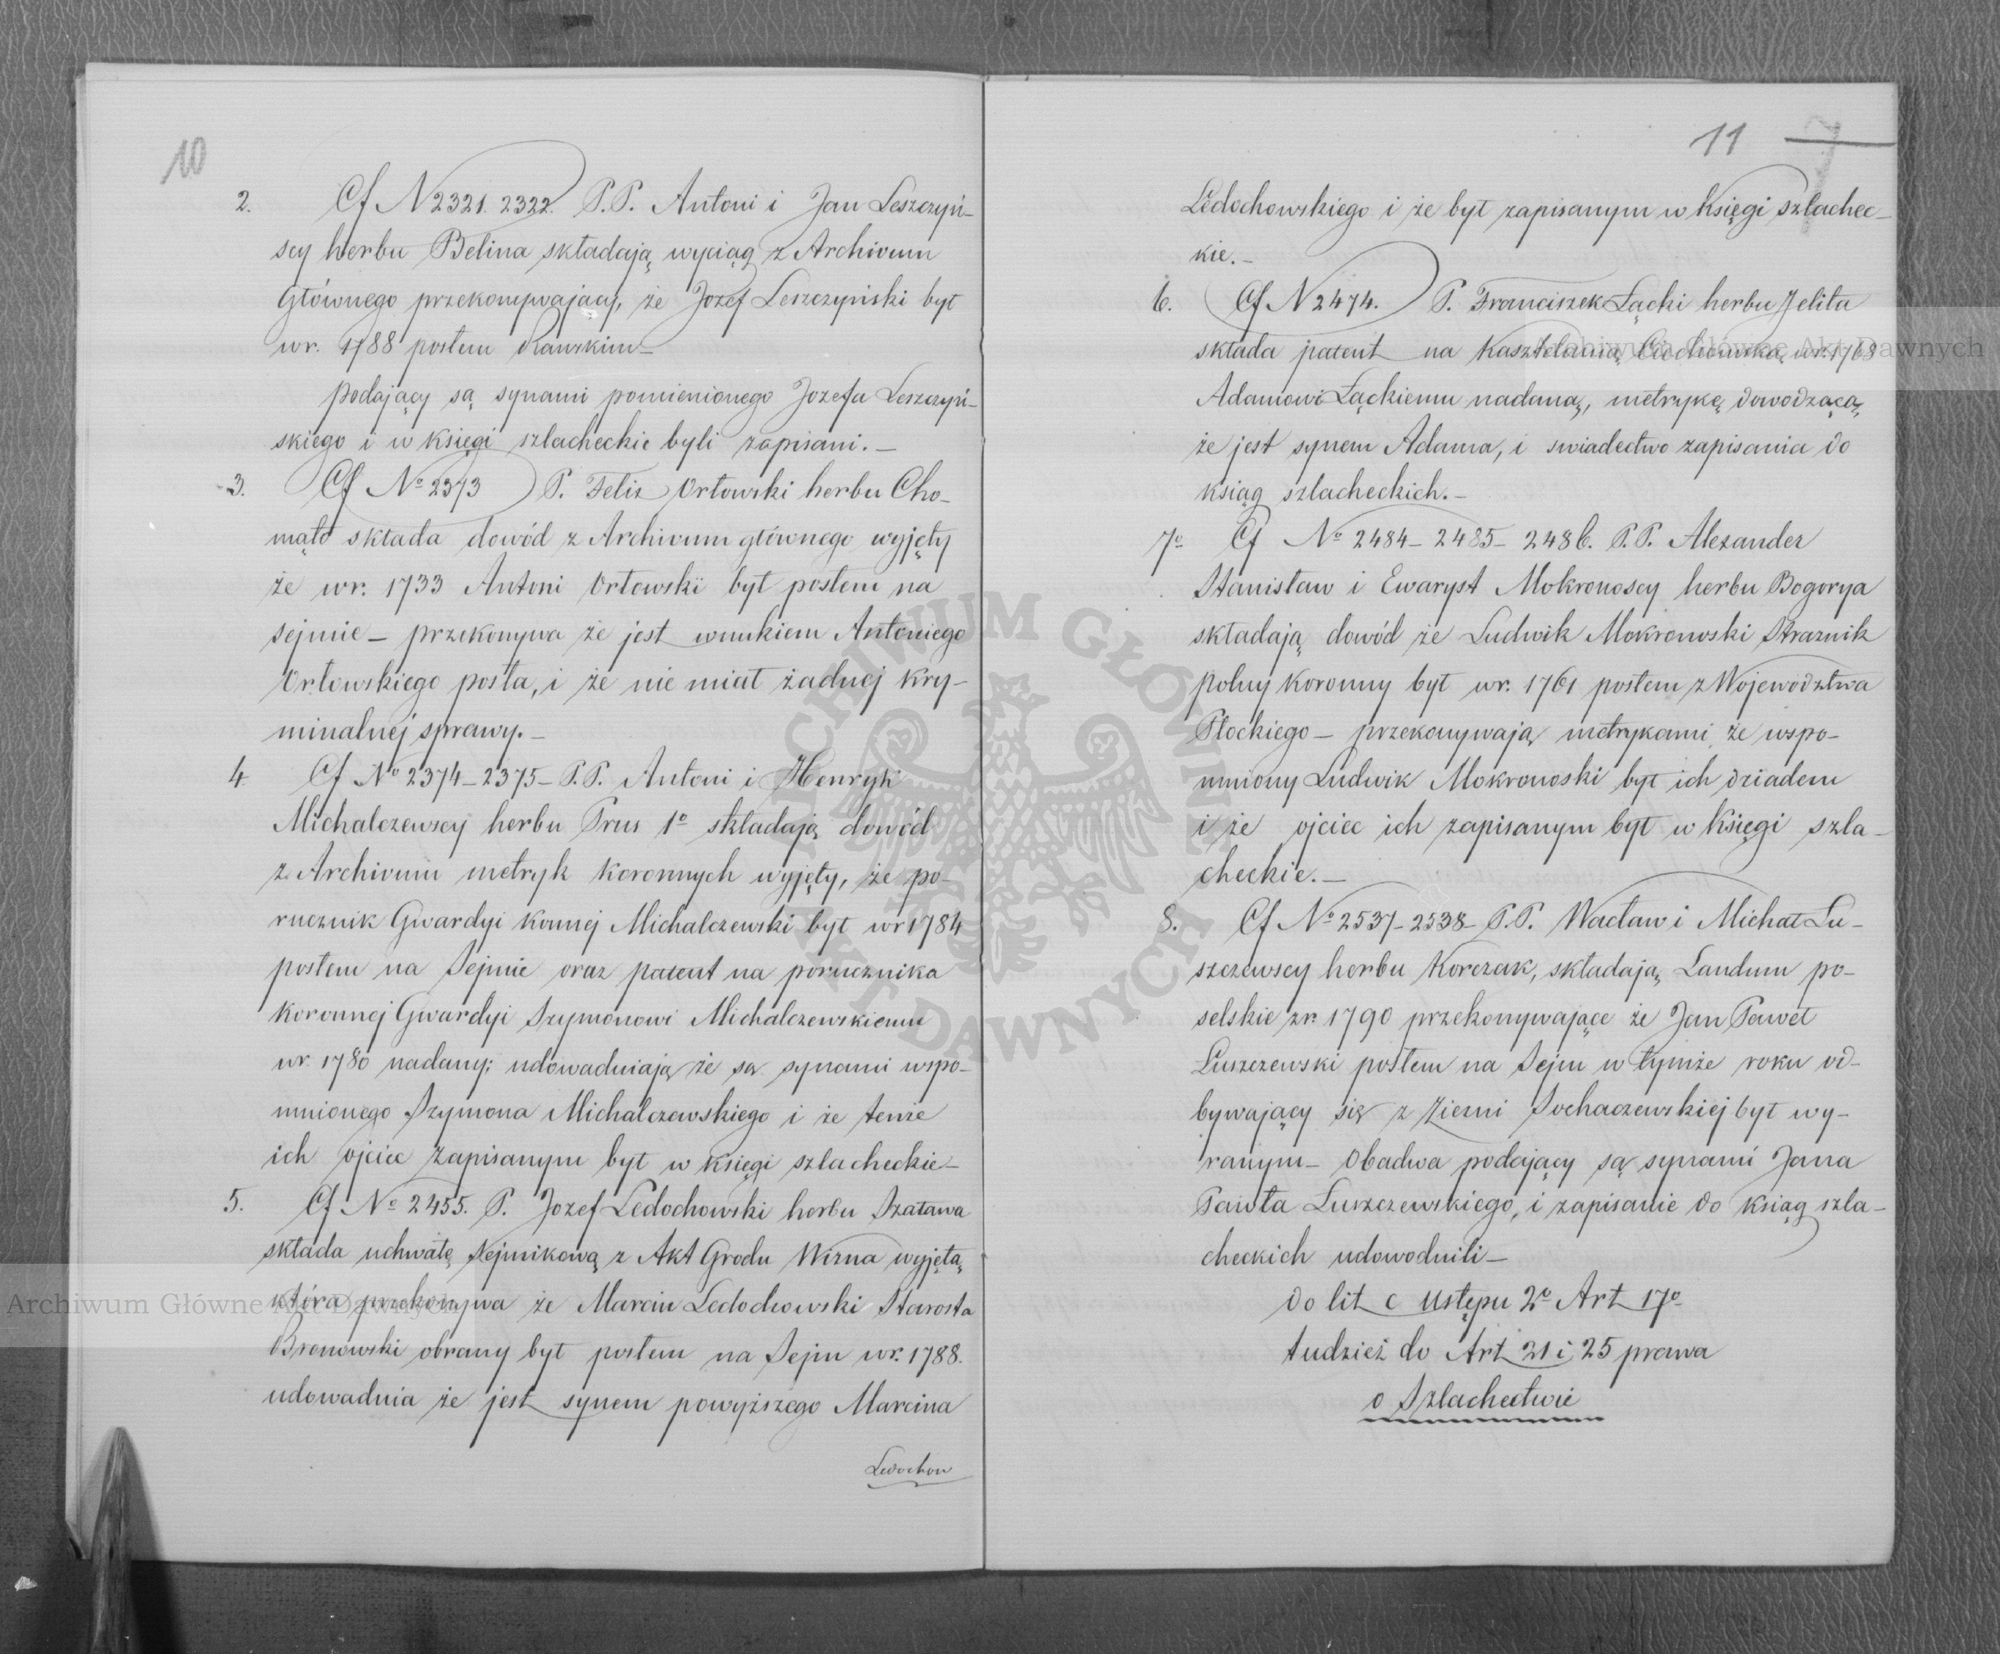 10
2. Cf N 2321. 2322. P.P. Antoni i Jan Leszczyń-
scy herbu Belina składają wyciąg z Archivum
Głównego przekonywający, że Jozef Leszczyński był
w r. 1788 posłem Rawskim –
podający są synami pomienionego Jozefa Leszczyń-
skiego i w księgi szlacheckie byli zapisani. –
3. Cf No 2373 P. Felix Orłowski herbu Cho-
mąto składa dowód z Archivum głównego wyjęty
że w r. 1733 Antoni Orłowski był posłem na
sejmie – przekonywa że jest wnukiem Antoniego
Orłowskiego posła, i że nie miał żadnej kry-
minalnej sprawy. –
4 Cf No 2374 – 2375 – P.P. Antoni i Henryk
Michalczewscy herbu Prus 1o składają dowód
z Archivum metryk koronnych wyjęty, że po-
rucznik Gwardyi konnej Michalczewski był w r 1784
posłem na Sejmie oraz patent na porucznika
koronnej Gwardyi Szymonowi Michalczewskiemu
w r. 1780 nadany; udowadniają że są synami wspo-
mnionego Szymona Michalczewskiego i że tenże
ich ojciec zapisanym był w księgi szlacheckie –
5. Cf No 2455. P. Jozef Ledochowski herbu Szaława
składa uchwałę Sejmikową z Akt Grodu Wizna wyjętą
która przekonywa że Marcin Ledochowski Starosta
Bronowski obrany był posłem na Sejm w r. 1788.
udowadnia że jest synem powyższego Marcina
Ledochow
11
Ledochowskiego i że był zapisanym w księgi szlachec-
kie. –
6. Cf N 2474. P. Franciszek Łącki herbu Jelita
składa patent na Kasztelanią w r. 1768
Adamowi Łąckiemu nadaną, metrykę dowodzącą,
że jest synem Adama, i swiadectwo zapisania do
ksiąg szlacheckich. –
7o Cf No 2484 – 2485 – 2486. P.P. Alexander
Stanisław i Ewaryst Mokronoscy herbu Bogorya
składają dowód że Ludwik Mokronowski Straznik
polny koronny był w r. 1761 posłem z Województwa
Płockiego – przekonywają metrykami że wspo-
mniony Ludwik Mokronoski był ich dziadem
i że ojciec ich zapisanym był w księgi szla-
checkie. –
8. Cf No 2537 – 2538 – P.P. Wacław i Michał Łu-
szczewscy herbu Korczak, składają Laudum po-
selskie z r. 1790 przekonywające że Jan Paweł
Łuszczewski posłem na Sejm w tymże roku od-
bywający się z Ziemi Sochaczewskiej był wy-
ranym – Obadwa podający są synami Jana
Pawła Łuszczewskiego, i zapisanie do ksiąg szla-
checkich udowodnili –
do lit c Ustępu 2o Art 17o
tudzież do Art 21 i 25 prawa
o Szlachectwie
ARCHIWUM GŁÓWNE
AKT DAWNYCH
Archiwum Główne Akt Dawnych
Archiwum Główne Akt Dawnych